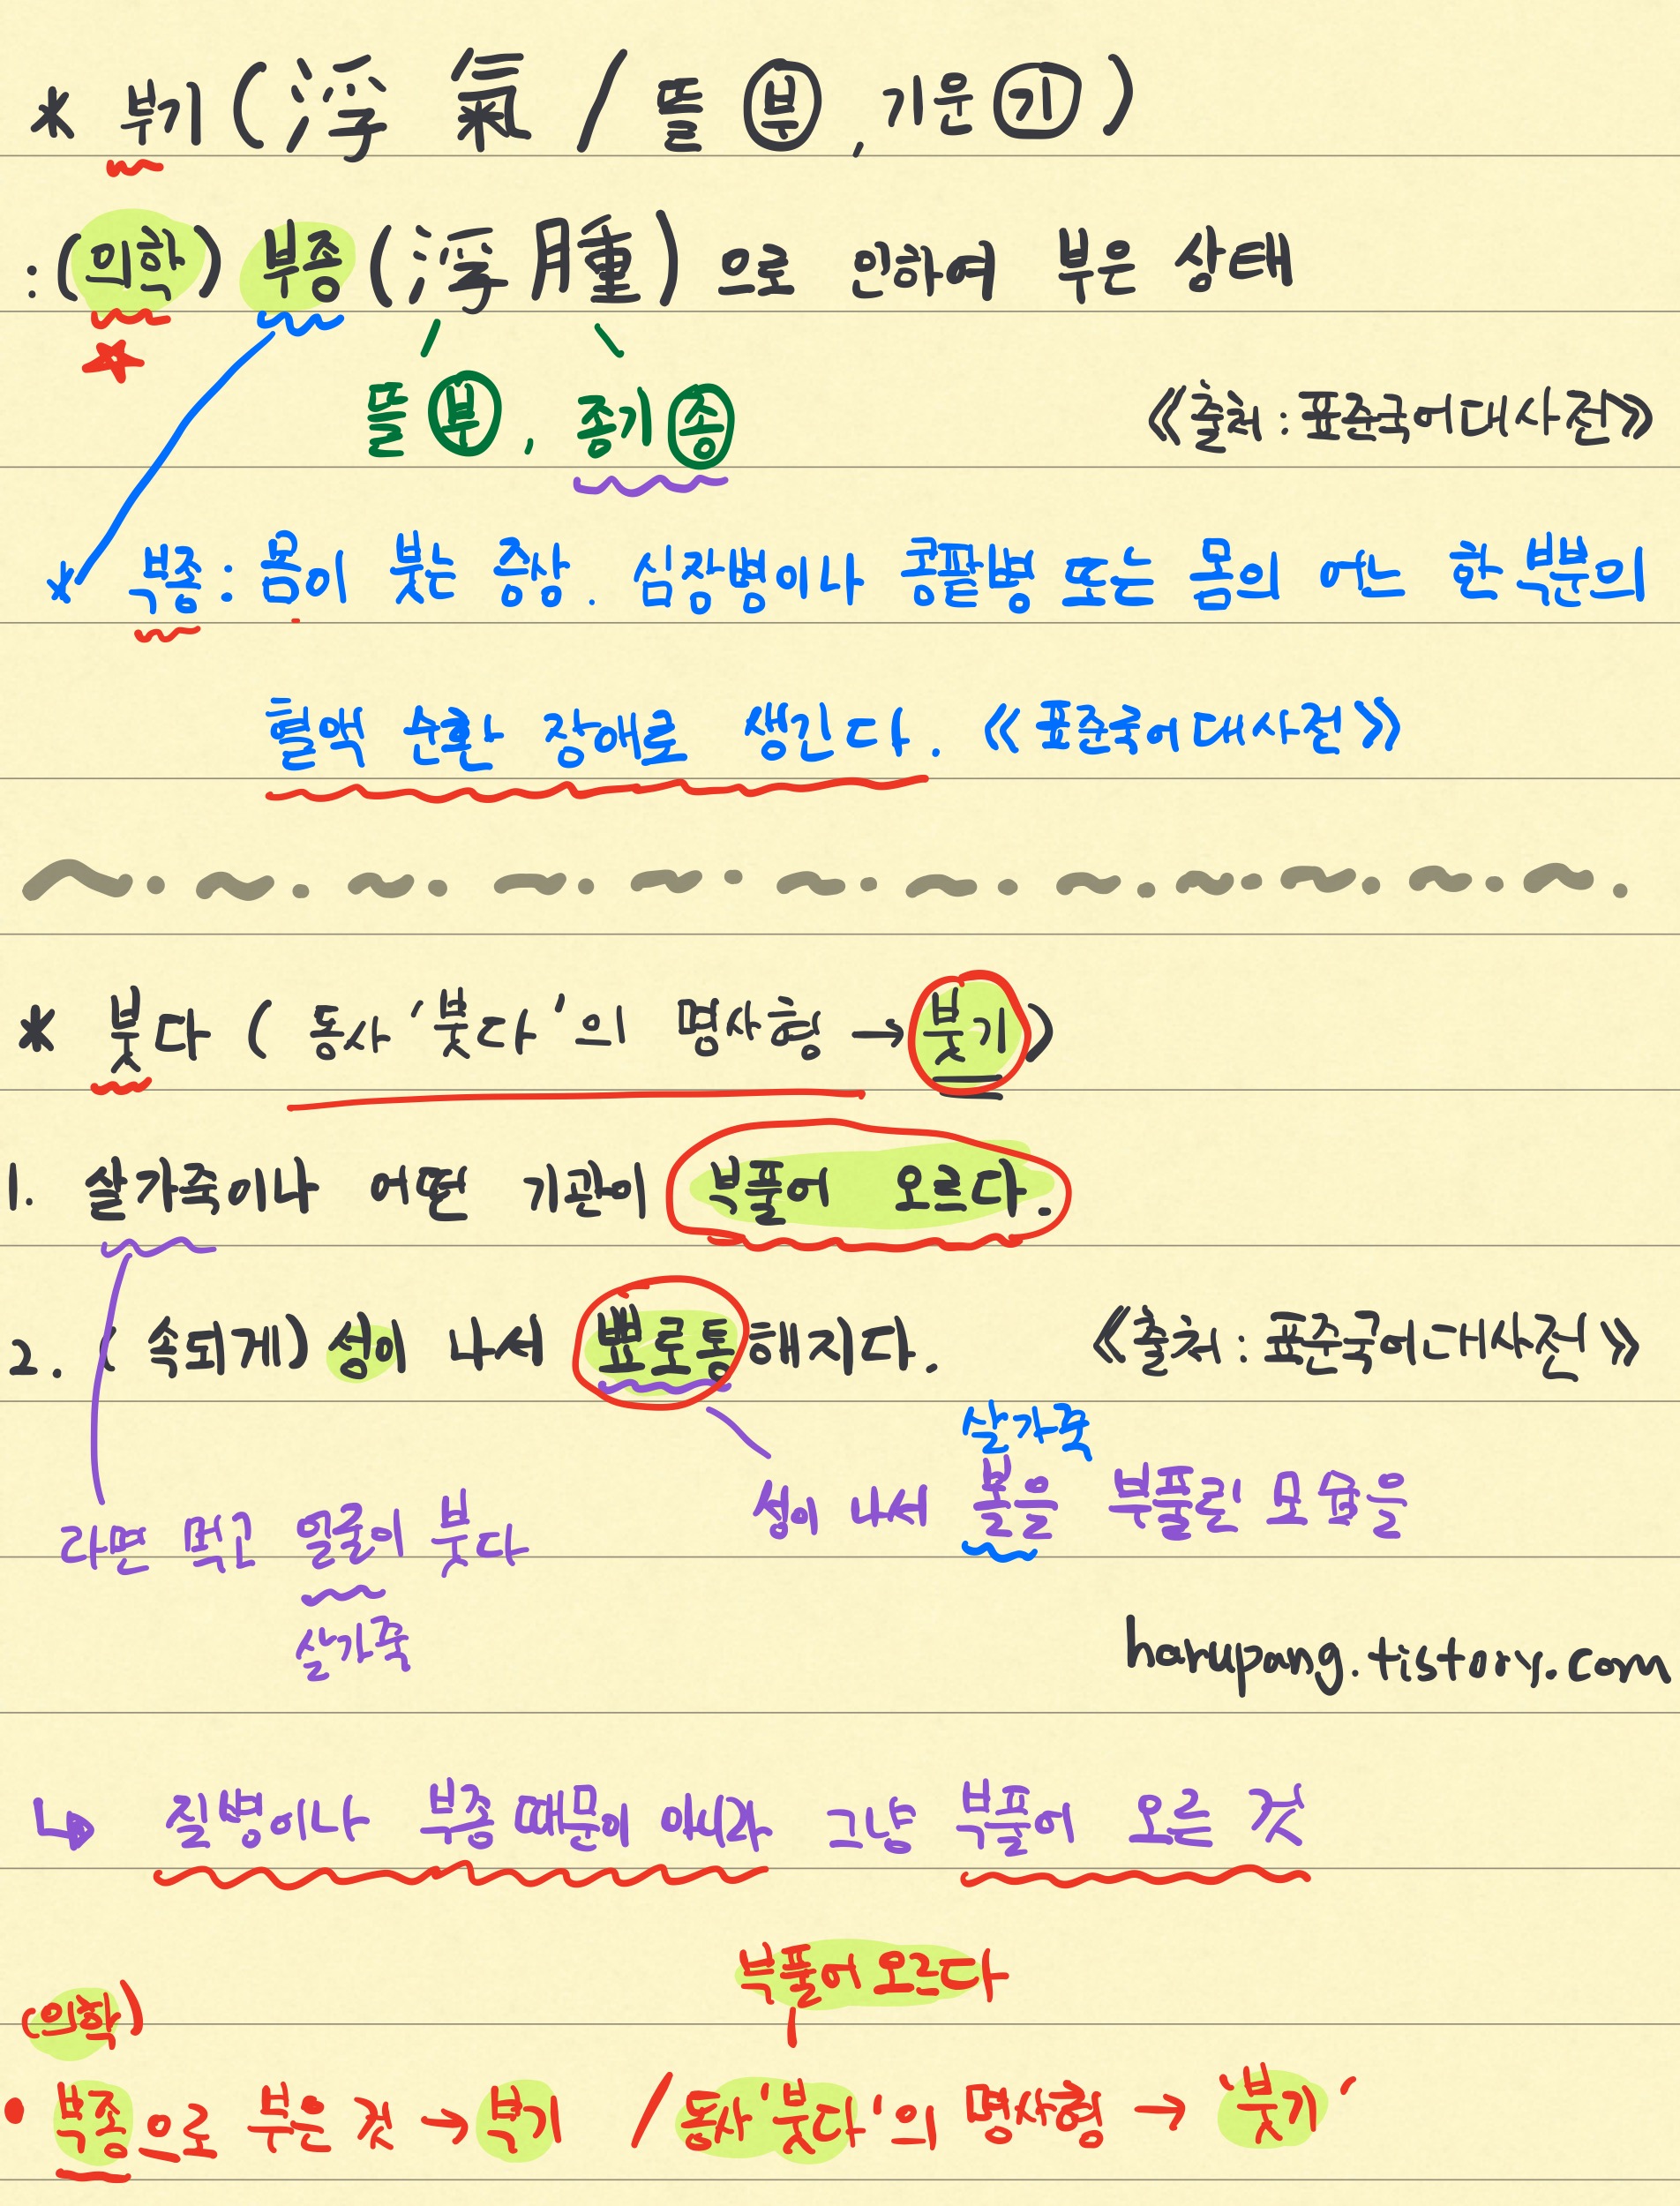 * 부기(浮氣/뜰 부, 기운 기)
:(의학) 부종(浮腫)으로 인하여 부은 상태
뜰 부, 종기 종
《출처:표준국어대사전》
* 부종: 몸이 붓는 증상. 심장병이나 콩팥병 또는 몸의 어느 한 부분의
혈액 순환 장애로 생긴다. 《표준국어대사전》
* 붓다 (동사 '붓다'의 명사형 →붓기)
1. 살가죽이나 어떤 기관이 부풀어 오르다.
2. (속되게) 성이 나서 뾰로통해지다. 《출처:표준국어대사전》
살가죽
성이 나서 볼을 부풀린 모습을
라면 먹고 얼굴이 붓다
살가죽
harupang.tistory.com
↳ 질병이나 부종 때문이 아니라 그냥 부풀어 오른 것
부풀어 오르다
(의학)
• 부종으로 부은 것 → 부기 / 동사 '붓다'의 명사형 → '붓기'